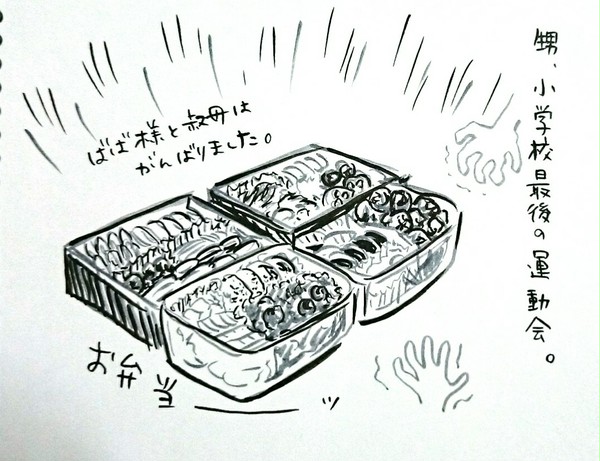 甥、小学校最後の運動会。
ばば様と叔母は
がんばりました。
お弁当——ッ